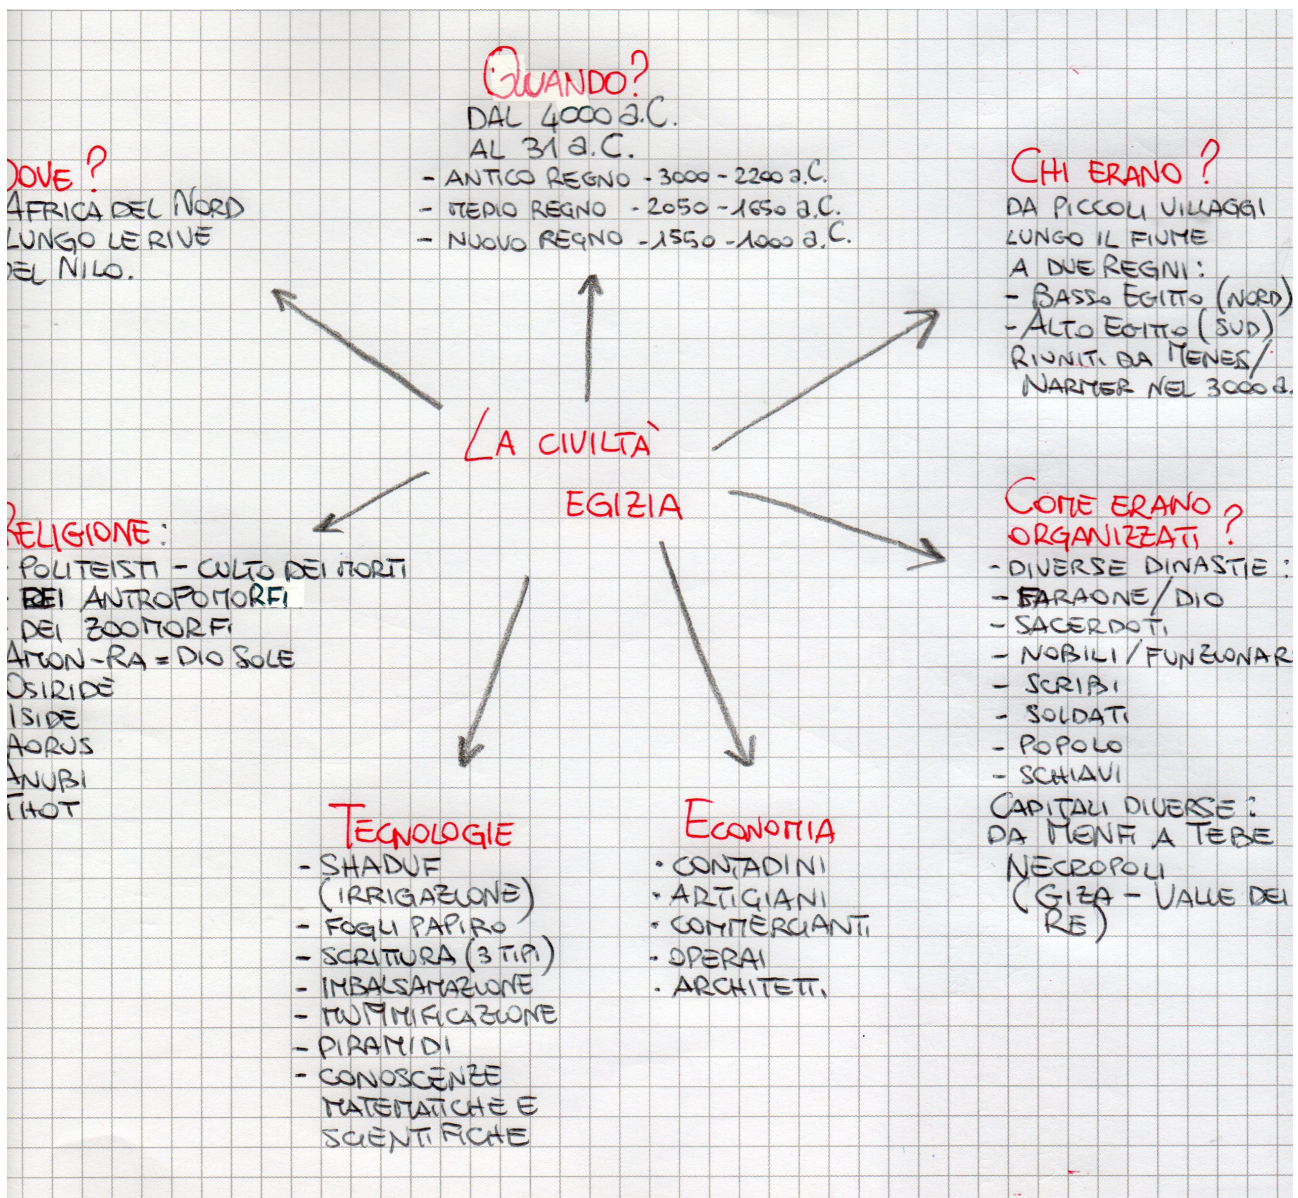 QUANDO?
DAL 4000 a.C.
AL 31 a.C.
- ANTICO REGNO - 3000 - 2200 a.C.
- MEDIO REGNO - 2050 - 1650 a.C.
- NUOVO REGNO - 1550 - 1000 a.C.
DOVE?
AFRICA DEL NORD
LUNGO LE RIVE
DEL NILO.
CHI ERANO?
DA PICCOLI VILLAGGI
LUNGO IL FIUME
A DUE REGNI:
- BASSO EGITTO (NORD)
- ALTO EGITTO (SUD)
RIUNITI DA MENES/
NARMER NEL 3000 a.
LA CIVILTÀ
EGIZIA
RELIGIONE:
- POLITEISTI - CULTO DEI MORTI
- DEI ANTROPOMORFI
- DEI ZOOMORFI
AMON-RA = DIO SOLE
OSIRIDE
ISIDE
AORUS
ANUBI
THOT
COME ERANO
ORGANIZZATI?
- DIVERSE DINASTIE:
- FARAONE/DIO
- SACERDOTI
- NOBILI/FUNZIONAR
- SCRIBI
- SOLDATI
- POPOLO
- SCHIAVI
CAPITALI DIVERSE:
DA MENFI A TEBE
NECROPOLI
(GIZA - VALLE DEI
RE)
TECNOLOGIE
- SHADUF
(IRRIGAZIONE)
- FOGLI PAPIRO
- SCRITTURA (3 TIPI)
- IMBALSAMAZIONE
- MUMMIFICAZIONE
- PIRAMIDI
- CONOSCENZE
MATEMATICHE E
SCIENTIFICHE
ECONOMIA
· CONTADINI
· ARTIGIANI
· COMMERCIANTI
· OPERAI
· ARCHITETTI